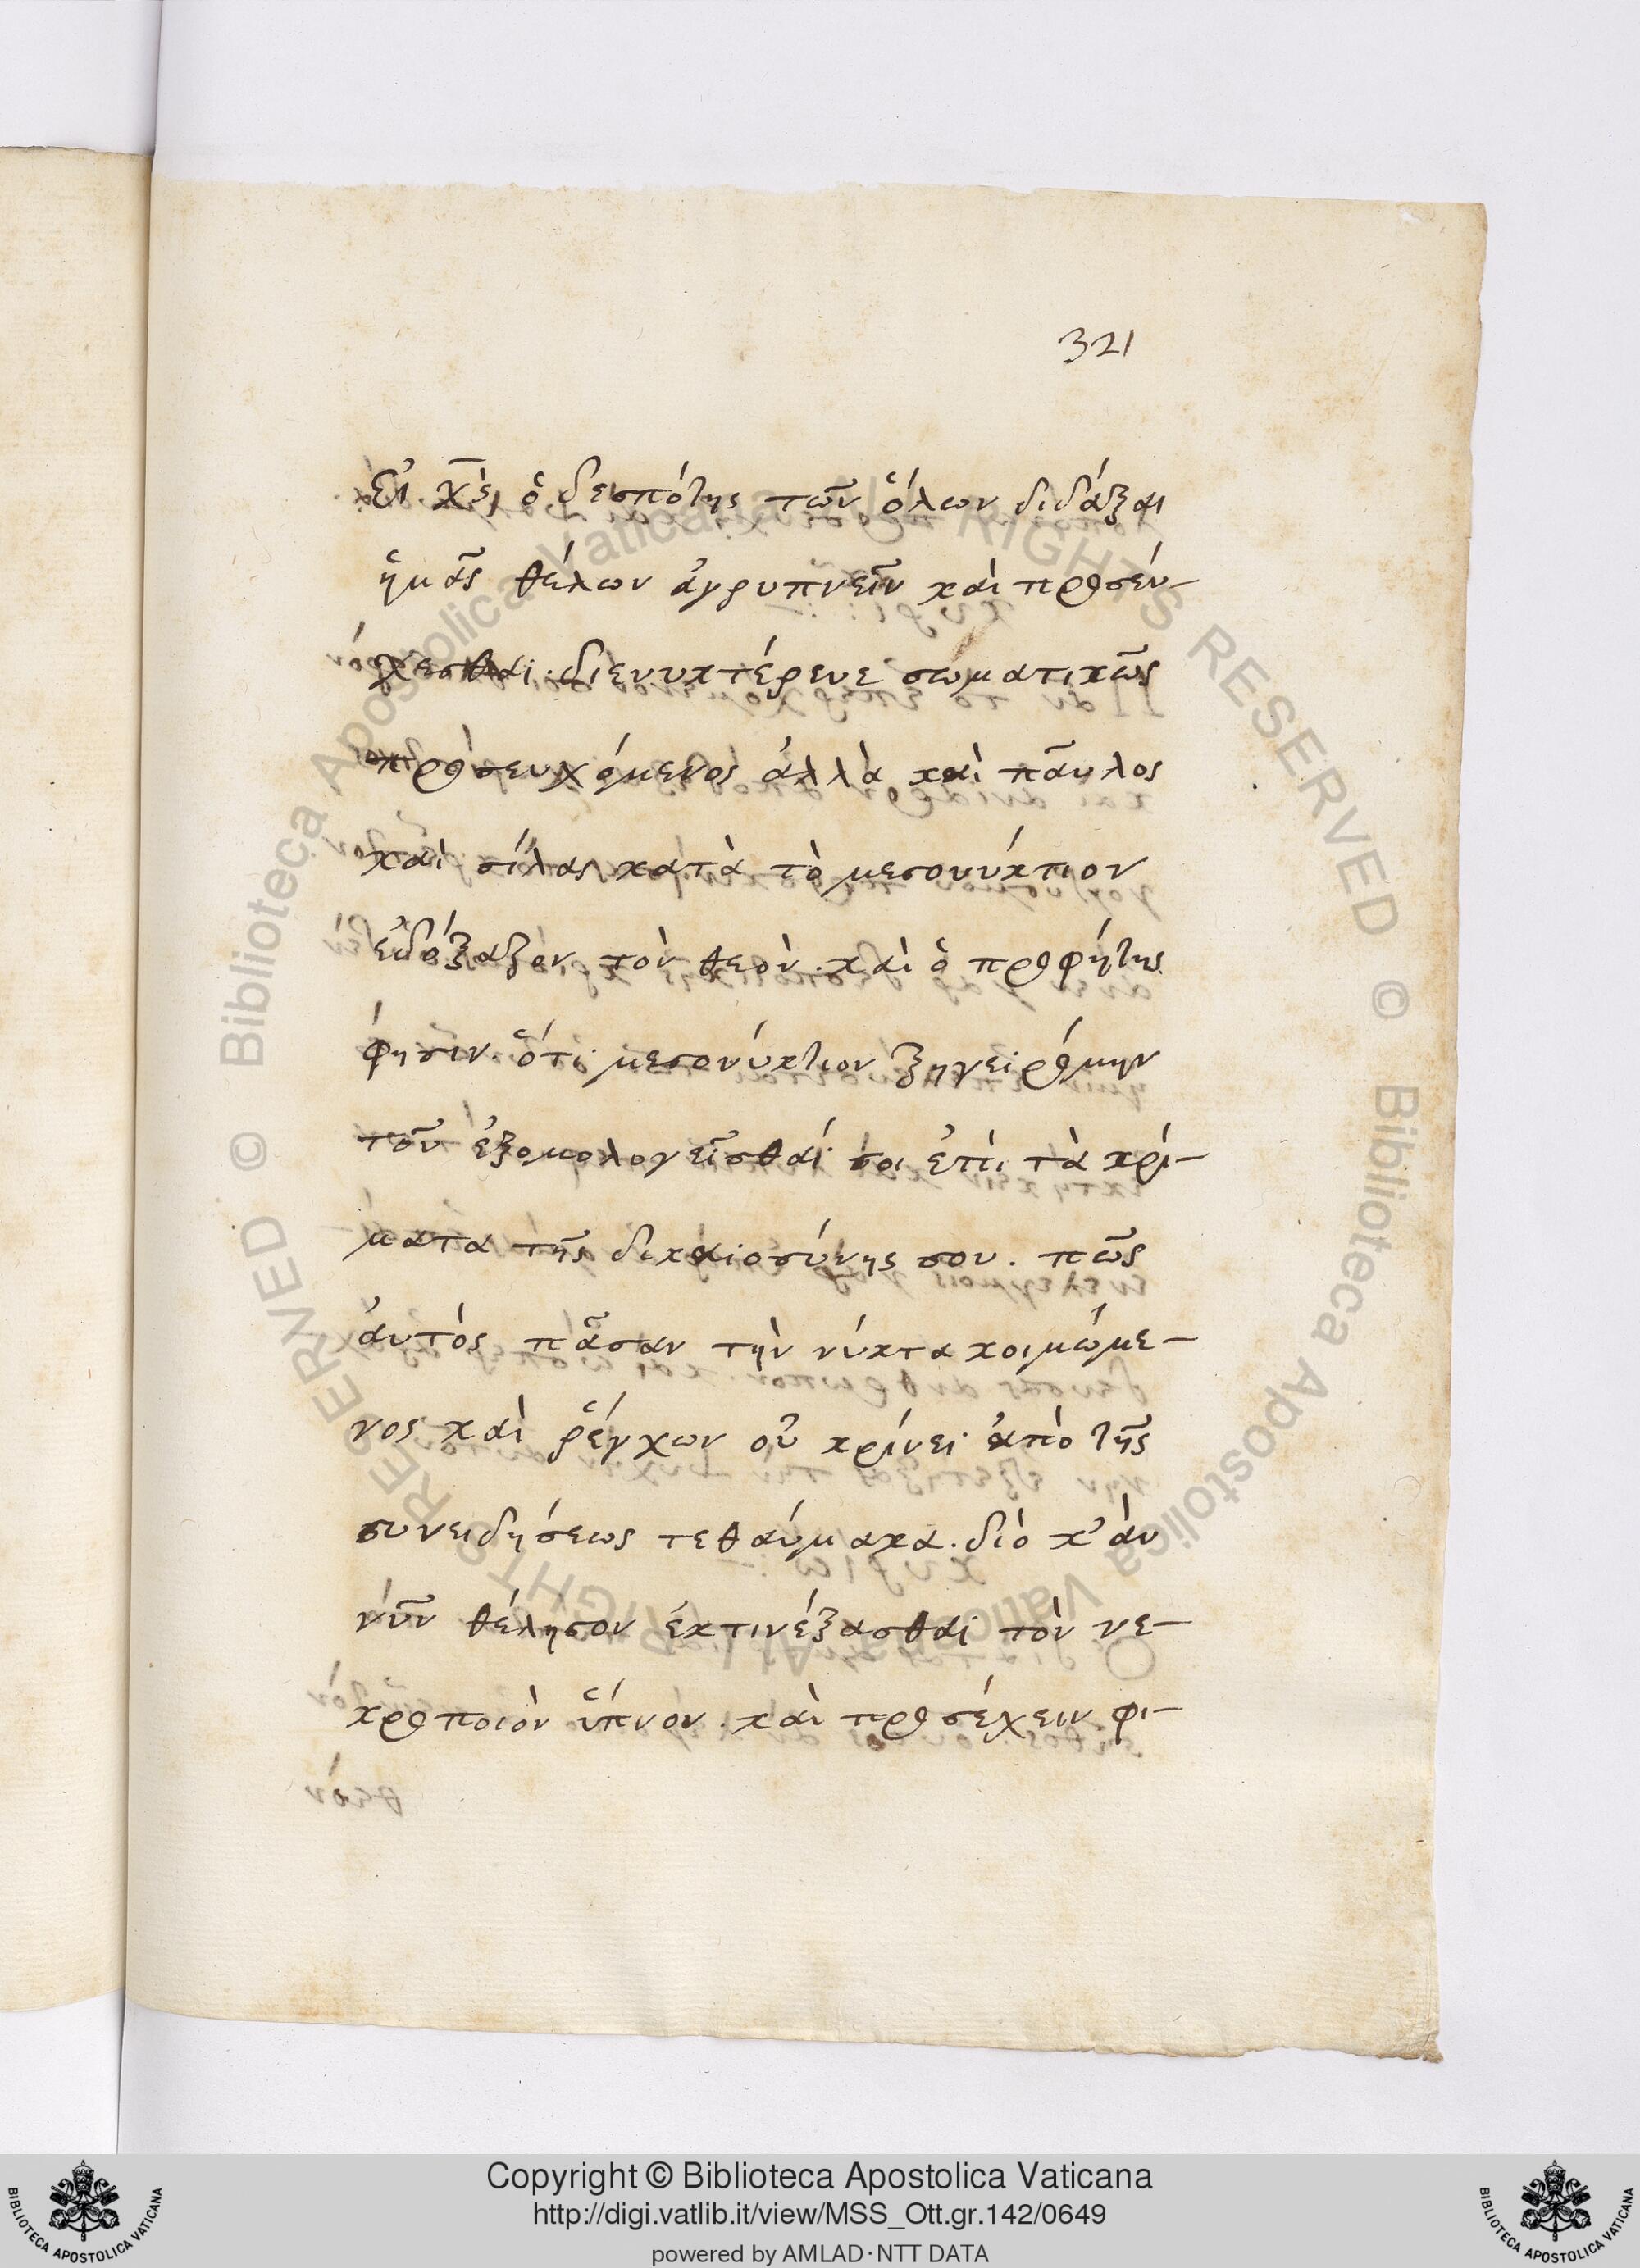 321
Εἰ χ̅ς̅ ὁ δεσπότης τῶν ὅλων διδάξαι
ἡμᾶς θέλων ἀγρυπνεῖν καὶ προσεύ-
χεσθαι· διενυκτέρευε σωματικῶς
προσευχόμενος ἀλλὰ καὶ παῦλος
καὶ σίλας κατὰ τὸ μεσονύκτιον
ἐδόξαζον τὸν θεὸν. καὶ ὁ προφήτης
φησιν. ὅτι μεσονύκτιον ξηγειρόμην
τοῦ ἐξομολογεῖσθαί σοι ἐπὶ τὰ κρί-
ματα τῆς δικαιοσύνης σου. πῶς
ἀυτὸς πᾶσαν τὴν νύκτα κοιμώμε-
νος καὶ ῥέγχων οὐ κρίνει ἀπὸ τῆς
συνειδήσεως τεθαύμακα. διὸ κ' ἀν
νῦν θέλησον ἐκτινέξασθαι τὸν νε-
κροποιὸν ὕπνον. καὶ προσέχειν φι-
Copyright © Biblioteca Apostolica Vaticana
http://digi.vatlib.it/view/MSS_Ott.gr.142/0649
powered by AMLAD·NTT DATA
BIBLIOTECA APOSTOLICA VATICANA
BIBLIOTECA APOSTOLICA VATICANA